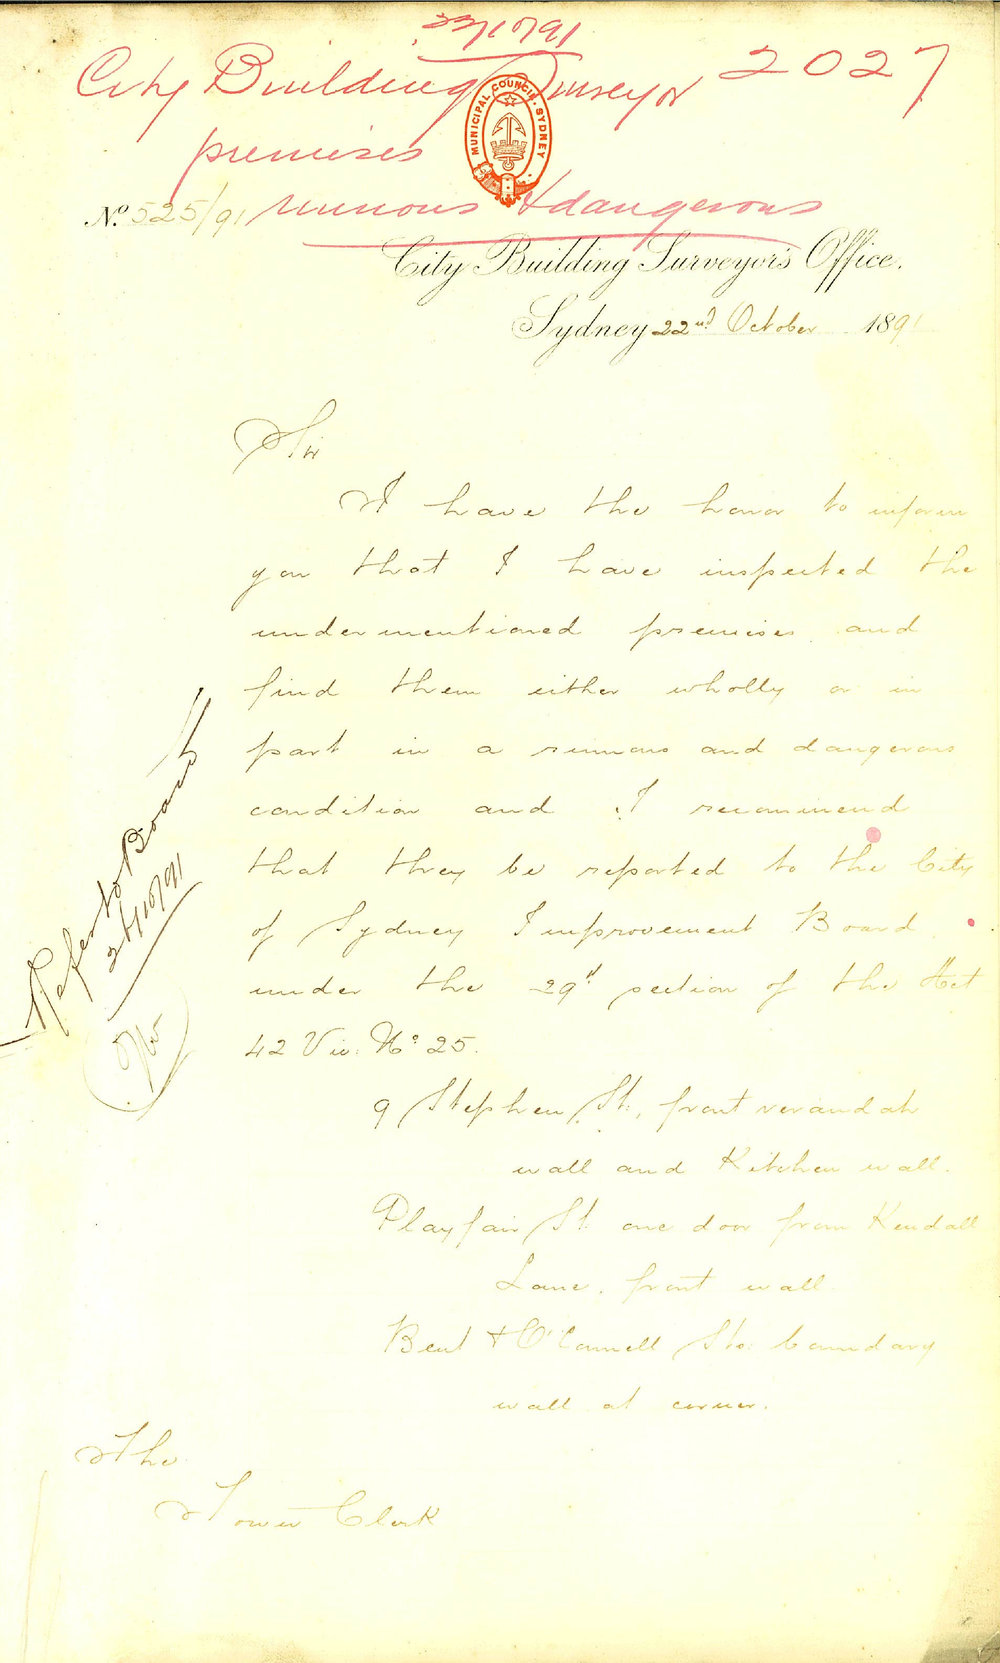 23/10/91
City Building Surveyor 2027
premises
MUNICIPAL COUNCIL. SYDNEY
No. 525/91 ruinous & dangerous
City Building Surveyor's Office.
Sydney 22nd October 1891
Sir
I have the honor to inform
you that I have inspected the
undermentioned premises and
find them either wholly or in
part in a ruinous and dangerous
condition and I recommend
that they be reported to the City
of Sydney Improvement Board
under the 29th section of the Act
42 Vic: No. 25.
9 Stephen St., front verandah
wall and Kitchen wall.
Playfair St. one door from Kendall
Lane, front wall.
Bent & O'Connell Sts: boundary
wall at corner.
The
Town Clerk
Refer to Board
26/10/91